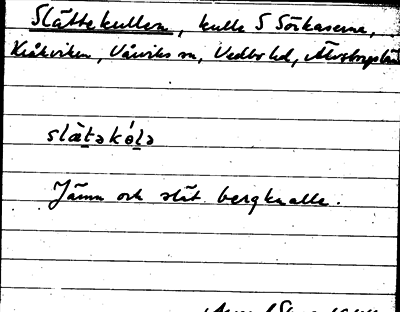 Slättekullen, kulle S Sörkaserna,
Kråkviken, Vårviks sn, Vedbo hd, Älvsborgs län
slätəkölə
Jämn och slät bergknalle.